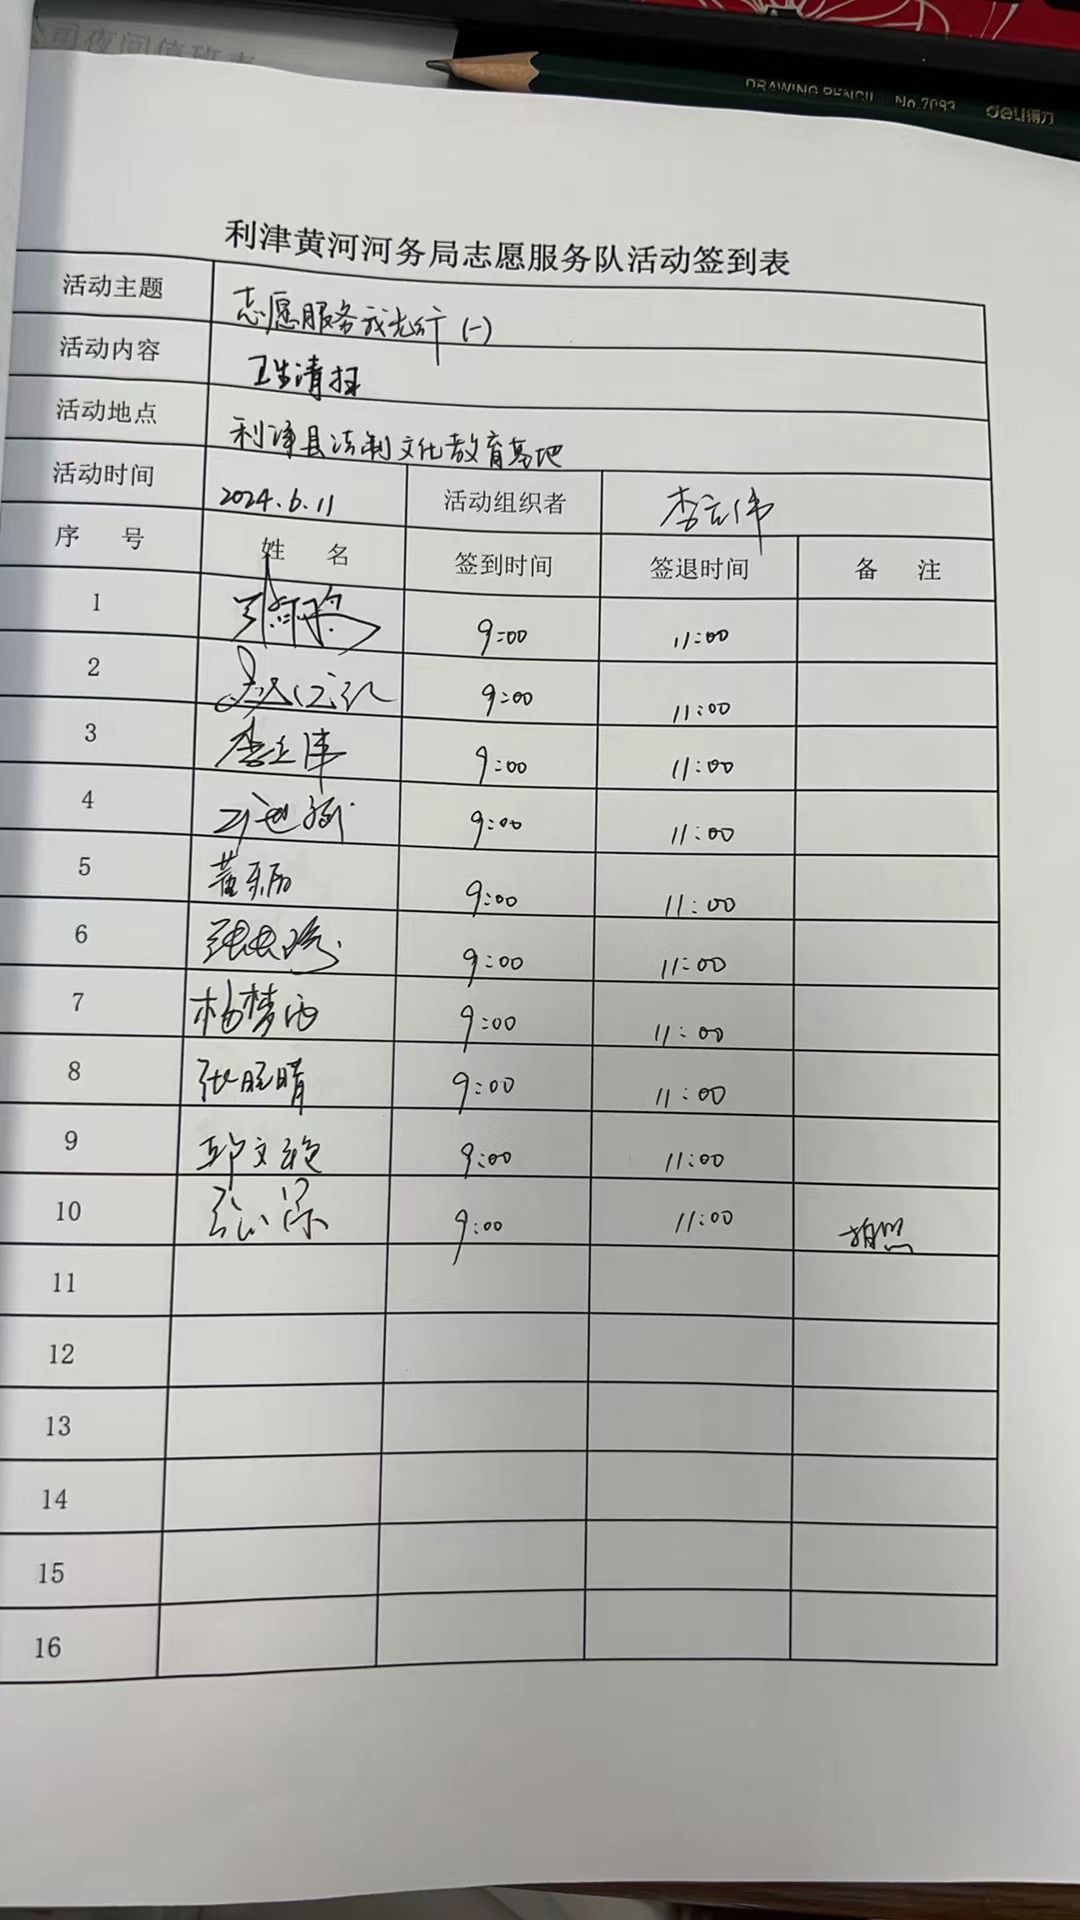 公司夜间值班表
DRAWING PENCIL No.7083 deli得力
利津黄河河务局志愿服务队活动签到表
活动主题 志愿服务我先行(一)
活动内容 卫生清扫
活动地点 利津县法制文化教育基地
活动时间 2024.6.11 活动组织者 李立伟
序 号 姓 名 签到时间 签退时间 备 注
1 9:00 11:00
2 9:00 11:00
3 9:00 11:00
4 9:00 11:00
5 9:00 11:00
6 9:00 11:00
7 杨梦雨 9:00 11:00
8 9:00 11:00
9 邱文艳 9:00 11:00
10 9:00 11:00 拍照
11
12
13
14
15
16